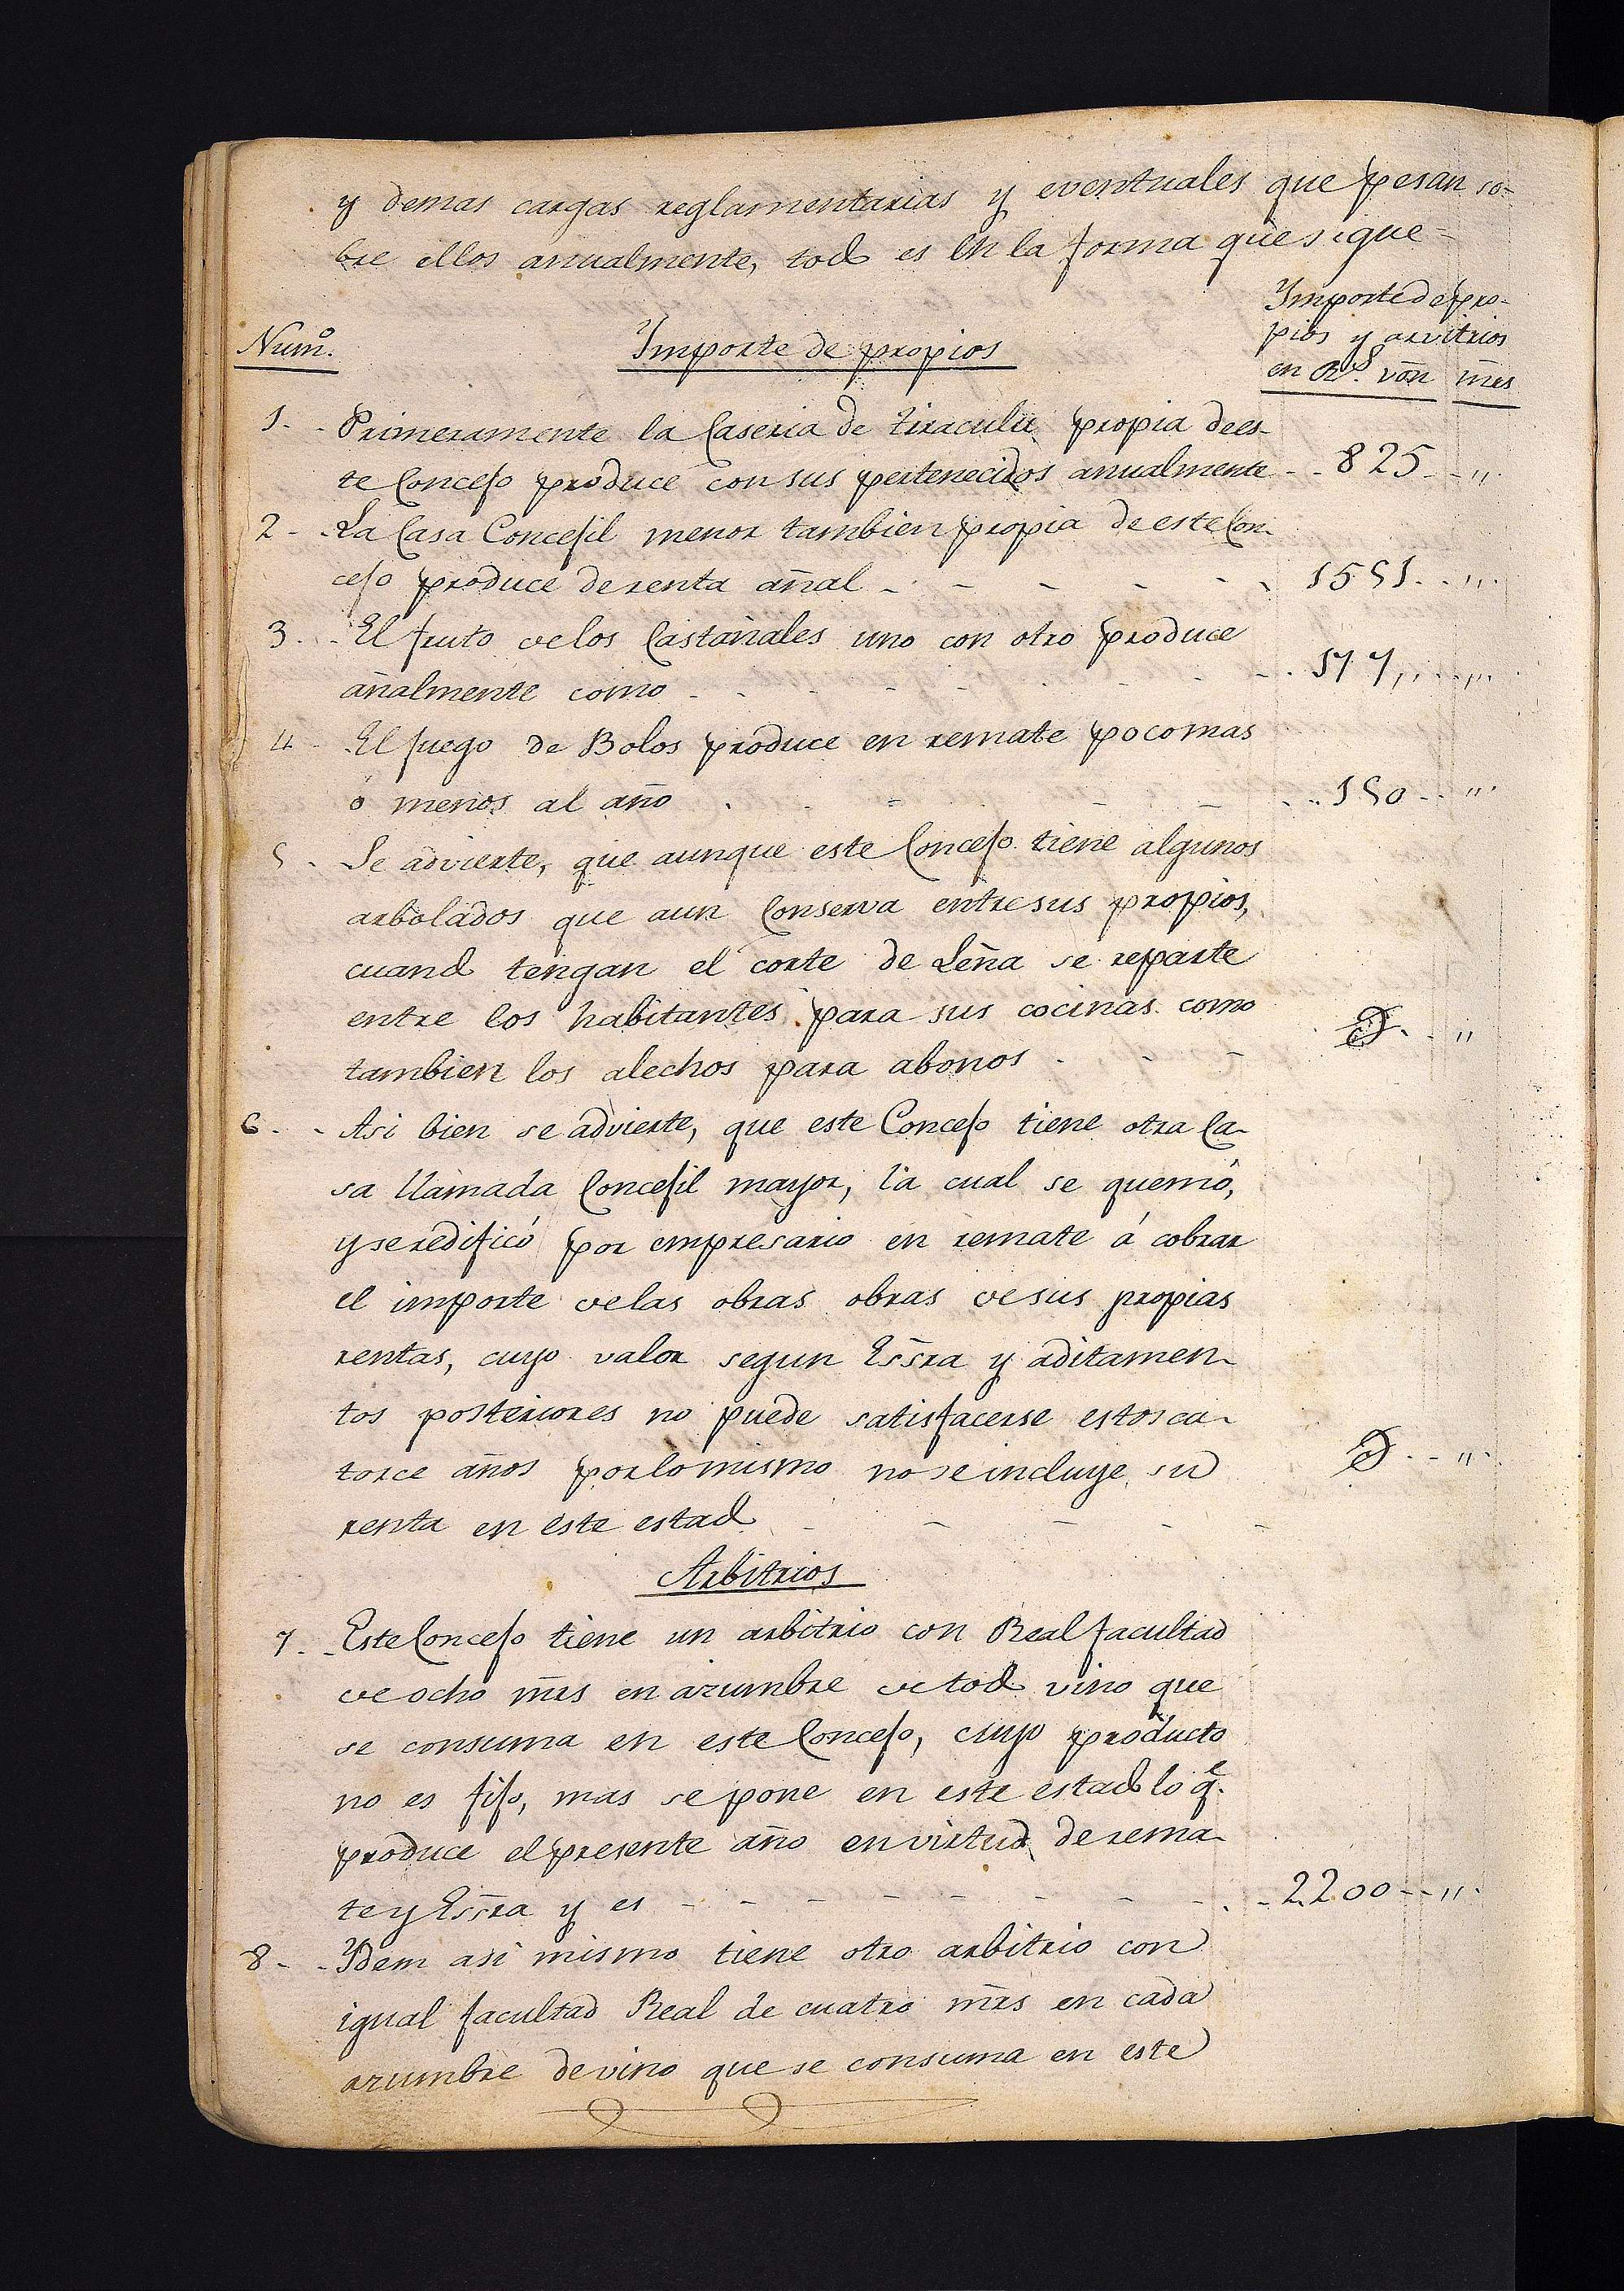 y demas cargas reglamentarias y eventuales que pesan so-
bre ellos anualmente, todo es en la forma que sigue
Ymporte de pro-
pios y arvitrios
Numº. Ymporte de propios en Rs. von mrs
1. Primeramente la Caseria de tiraculu propia de es-
te Concejo produce con sus pertenecidos anualmente 825 "
2 La Casa Concejil menor tambien propia de este Con-
cejo produce de renta añal 1551 "
3. El fruto de los Castañales uno con otro produce
añalmente como 177 "
4 El juego de Bolos produce en remate poco mas
ó menos al año 150 "
5 Se advierte, que aunque este Concejo tiene algunos
arbolados que aun Conserva entre sus propios,
cuando tengan el corte de Leña se reparte
entre los habitantes para sus cocinas como
tambien los alechos para abonos "
6. Asi bien se advierte, que este Concejo tiene otra Ca-
sa llamada Concejil mayor, la cual se quemó,
y se redificó por empresario en remate á cobrar
el importe de las obras obras de sus propias
rentas, cuyo valor segun Essra y aditamen-
tos posteriores no puede satisfacerse estos ca-
torce años por lo mismo no se incluye su
renta en este estado "
Arbitrios
7. Este Concejo tiene un arbitrio con Real facultad
de ocho mrs en azumbre de todo vino que
se consuma en este Concejo, cuyo producto
no es fijo, mas se pone en este estado lo qe.
produce el presente año en virtud de rema-
te y Essra y es 2200 "
8 Ydem asi mismo tiene otro arbitrio con
igual facultad Real de cuatro mrs en cada
azumbre de vino que se consuma en este